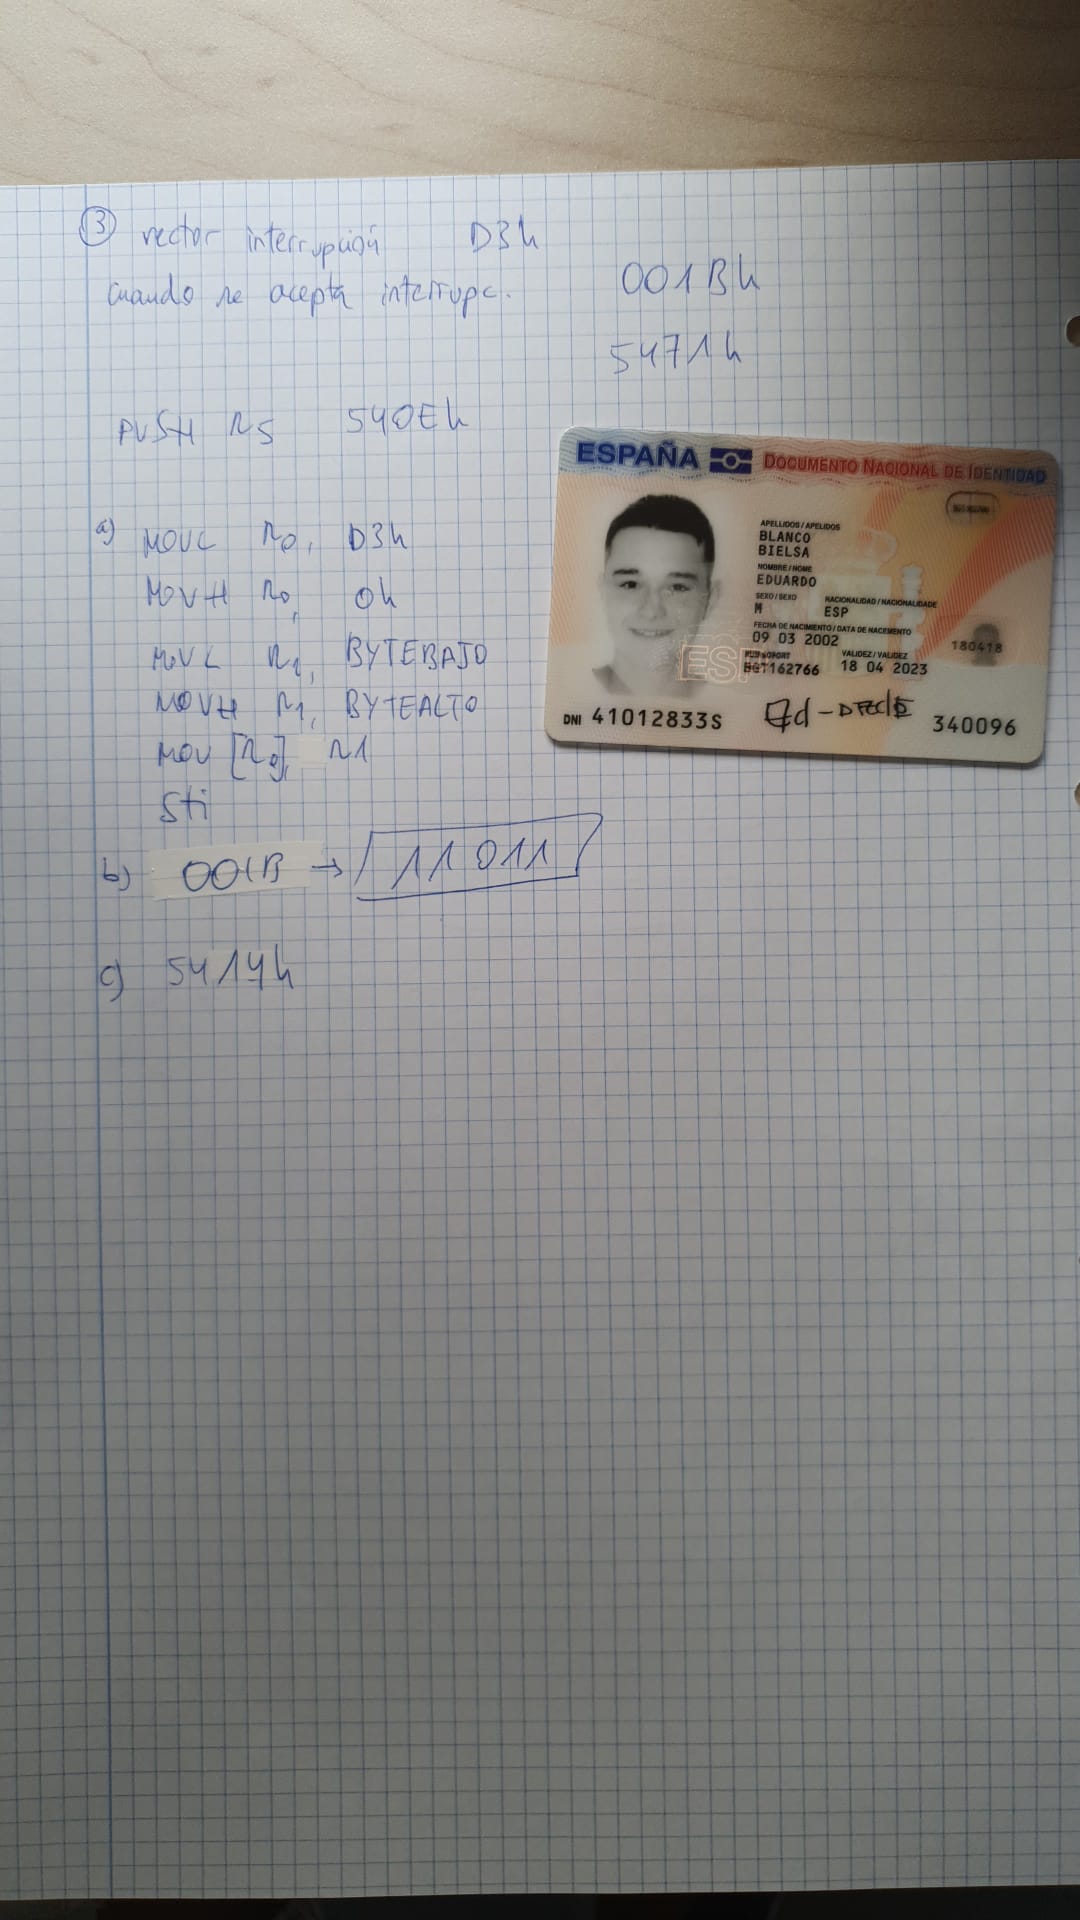 3 vector interrupción D3h
cuando se acepta interrupc. 001Bh
5471h
PUSH R5 540Eh
a) MOVL R0, D3h
MOVH R0, 0h
MOVL R1, BYTEBAJO
MOVH R1, BYTEALTO
MOV [R0], R1
Sti
b) 001B → 11011
c) 5414h
ESPAÑA DOCUMENTO NACIONAL DE IDENTIDAD
APELLIDOS / APELIDOS
BLANCO
BIELSA
NOMBRE / NOME
EDUARDO
SEXO / SEXO NACIONALIDAD / NACIONALIDADE
M ESP
FECHA DE NACIMIENTO / DATA DE NACEMENTO
09 03 2002
VALIDEZ / VALIDEZ
18 04 2023
180418
DNI 41012833S
340096